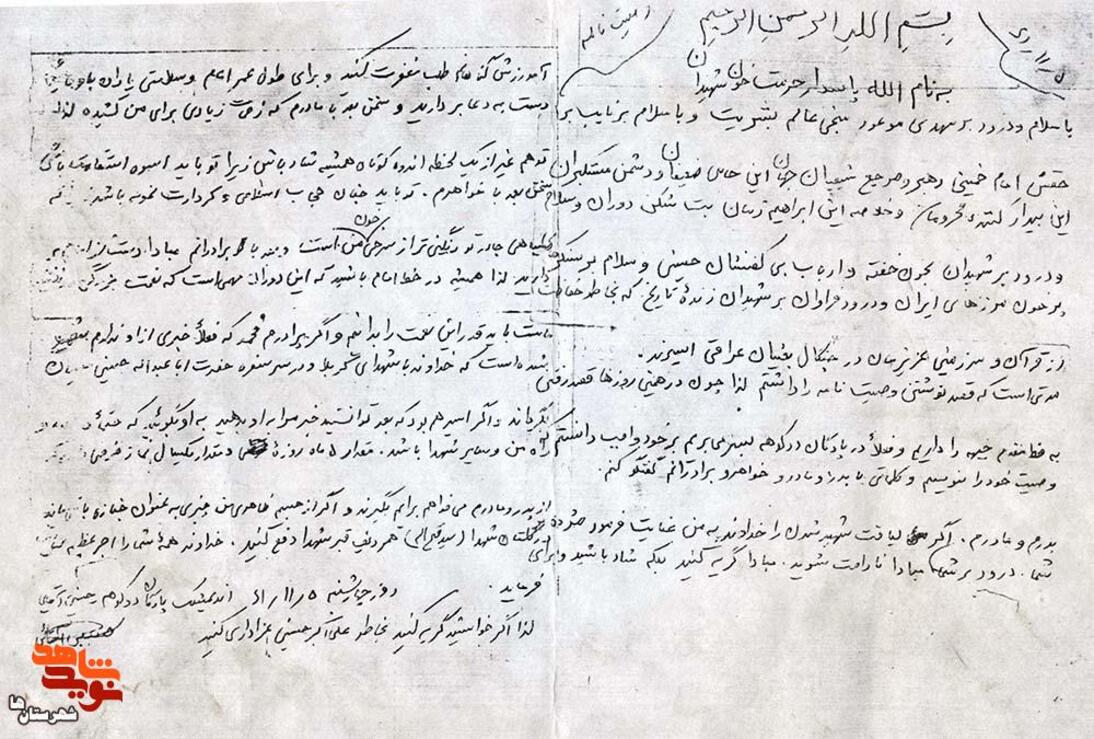 وصیت نامه
بِسْمِ اللهِ الرحمنِ الرحیمِ
به نام الله پاسدار حرمت خون شهیدان
با سلام و درود بر مهدی موعود منجی عالم بشریت و با سلام بر نایب بر
حقش امام خمینی رهبر و مرجع شیعیان جهان این حامی ضعیفان و دشمن مستکبران
این بیدار کننده محرومان و خلاصه این ابراهیم زمان بت شکن دوران و سلام
و درود بر شهیدان بخون خفته و ارباب بی کفنشان حسینی و سلام بر سنگر
بخون مرزهای ایران و درود فراوان بر شهیدان زندهٔ تاریخ که بخاطر حفاظت
از قرآن و سرزمین عزیزمان در چنگال بعثیان عراقی اسیرند.
مدتی است که قصد نوشتن وصیت نامه را داشتم لذا چون در همین روزها قصد رفتن
به خط مقدم جبهه را داریم و فعلاً در پادگان دوکوهه بسر می بریم بر خود واجب دانستم که
وصیت خود را بنویسم و کلماتی با پدر و مادر و خواهر و برادرانم گفتگو کنم.
پدرم و مادرم. اگر لیاقت شهید شدن را خداوند به من عنایت فرمود
شما. درود بر شما مبادا ناراحت شوید. مبادا گریه کنید بلکه شاد باشید و برای
آمرزش گناهانم طلب مغفرت کنید و برای طول عمر امام و سلامتی یاران باوفایش
دست به دعا بردارید و سخنی با مادرم که زحمت زیادی برای من کشیده لذا
تو هم غیر از یک لحظه اندوه کوتاه همیشه شاد باش زیرا تو باید اسوه استقامت باشی
سخنی با خواهرم. تو باید حجاب اسلامی و کردارت نمونه باشد. که
سیاهی چادر تو رنگین تر از سرخی خون من است و با برادرانم مبادا دست از امام
بردارید لذا همیشه در خط امام باشید که این دوران مهمی است که نعمت بزرگی
ماست باید قدر این نعمت را بدانیم و اگر برادرم محمد که فعلاً خبری از او ندارم شهید
شده است که خداوند با شهدای کربلا و در سر سفره حضرت ابا عبداله حسینی
بگرداند و اگر اسیر هم بود که بعد توانستید خبر مرا به او بدهید به او بگوئید که
راه من و سایر شهدا باشد. مقدار ۵ ماه روزهٔ و مقدار یکسال نماز قرضی
از پدر و مادرم می خواهم برایم بگیرند و اگر از جسم ظاهری من چیزی به عنوان جنازه باقی ماند
در گلستان شهدا هم ردیف قبر شهدا دفن کنید. خداوند همهٔ شما را اجر عظیم عنایت
فرماید. روز چهارشنبه ۶۱/۱۱/۵ اندیمشک پادگان دوکوهه
لذا اگر خواستید گریه کنید بخاطر علی اکبر حسینی عزاداری کنید
نوید شاهد
شهرستان ها